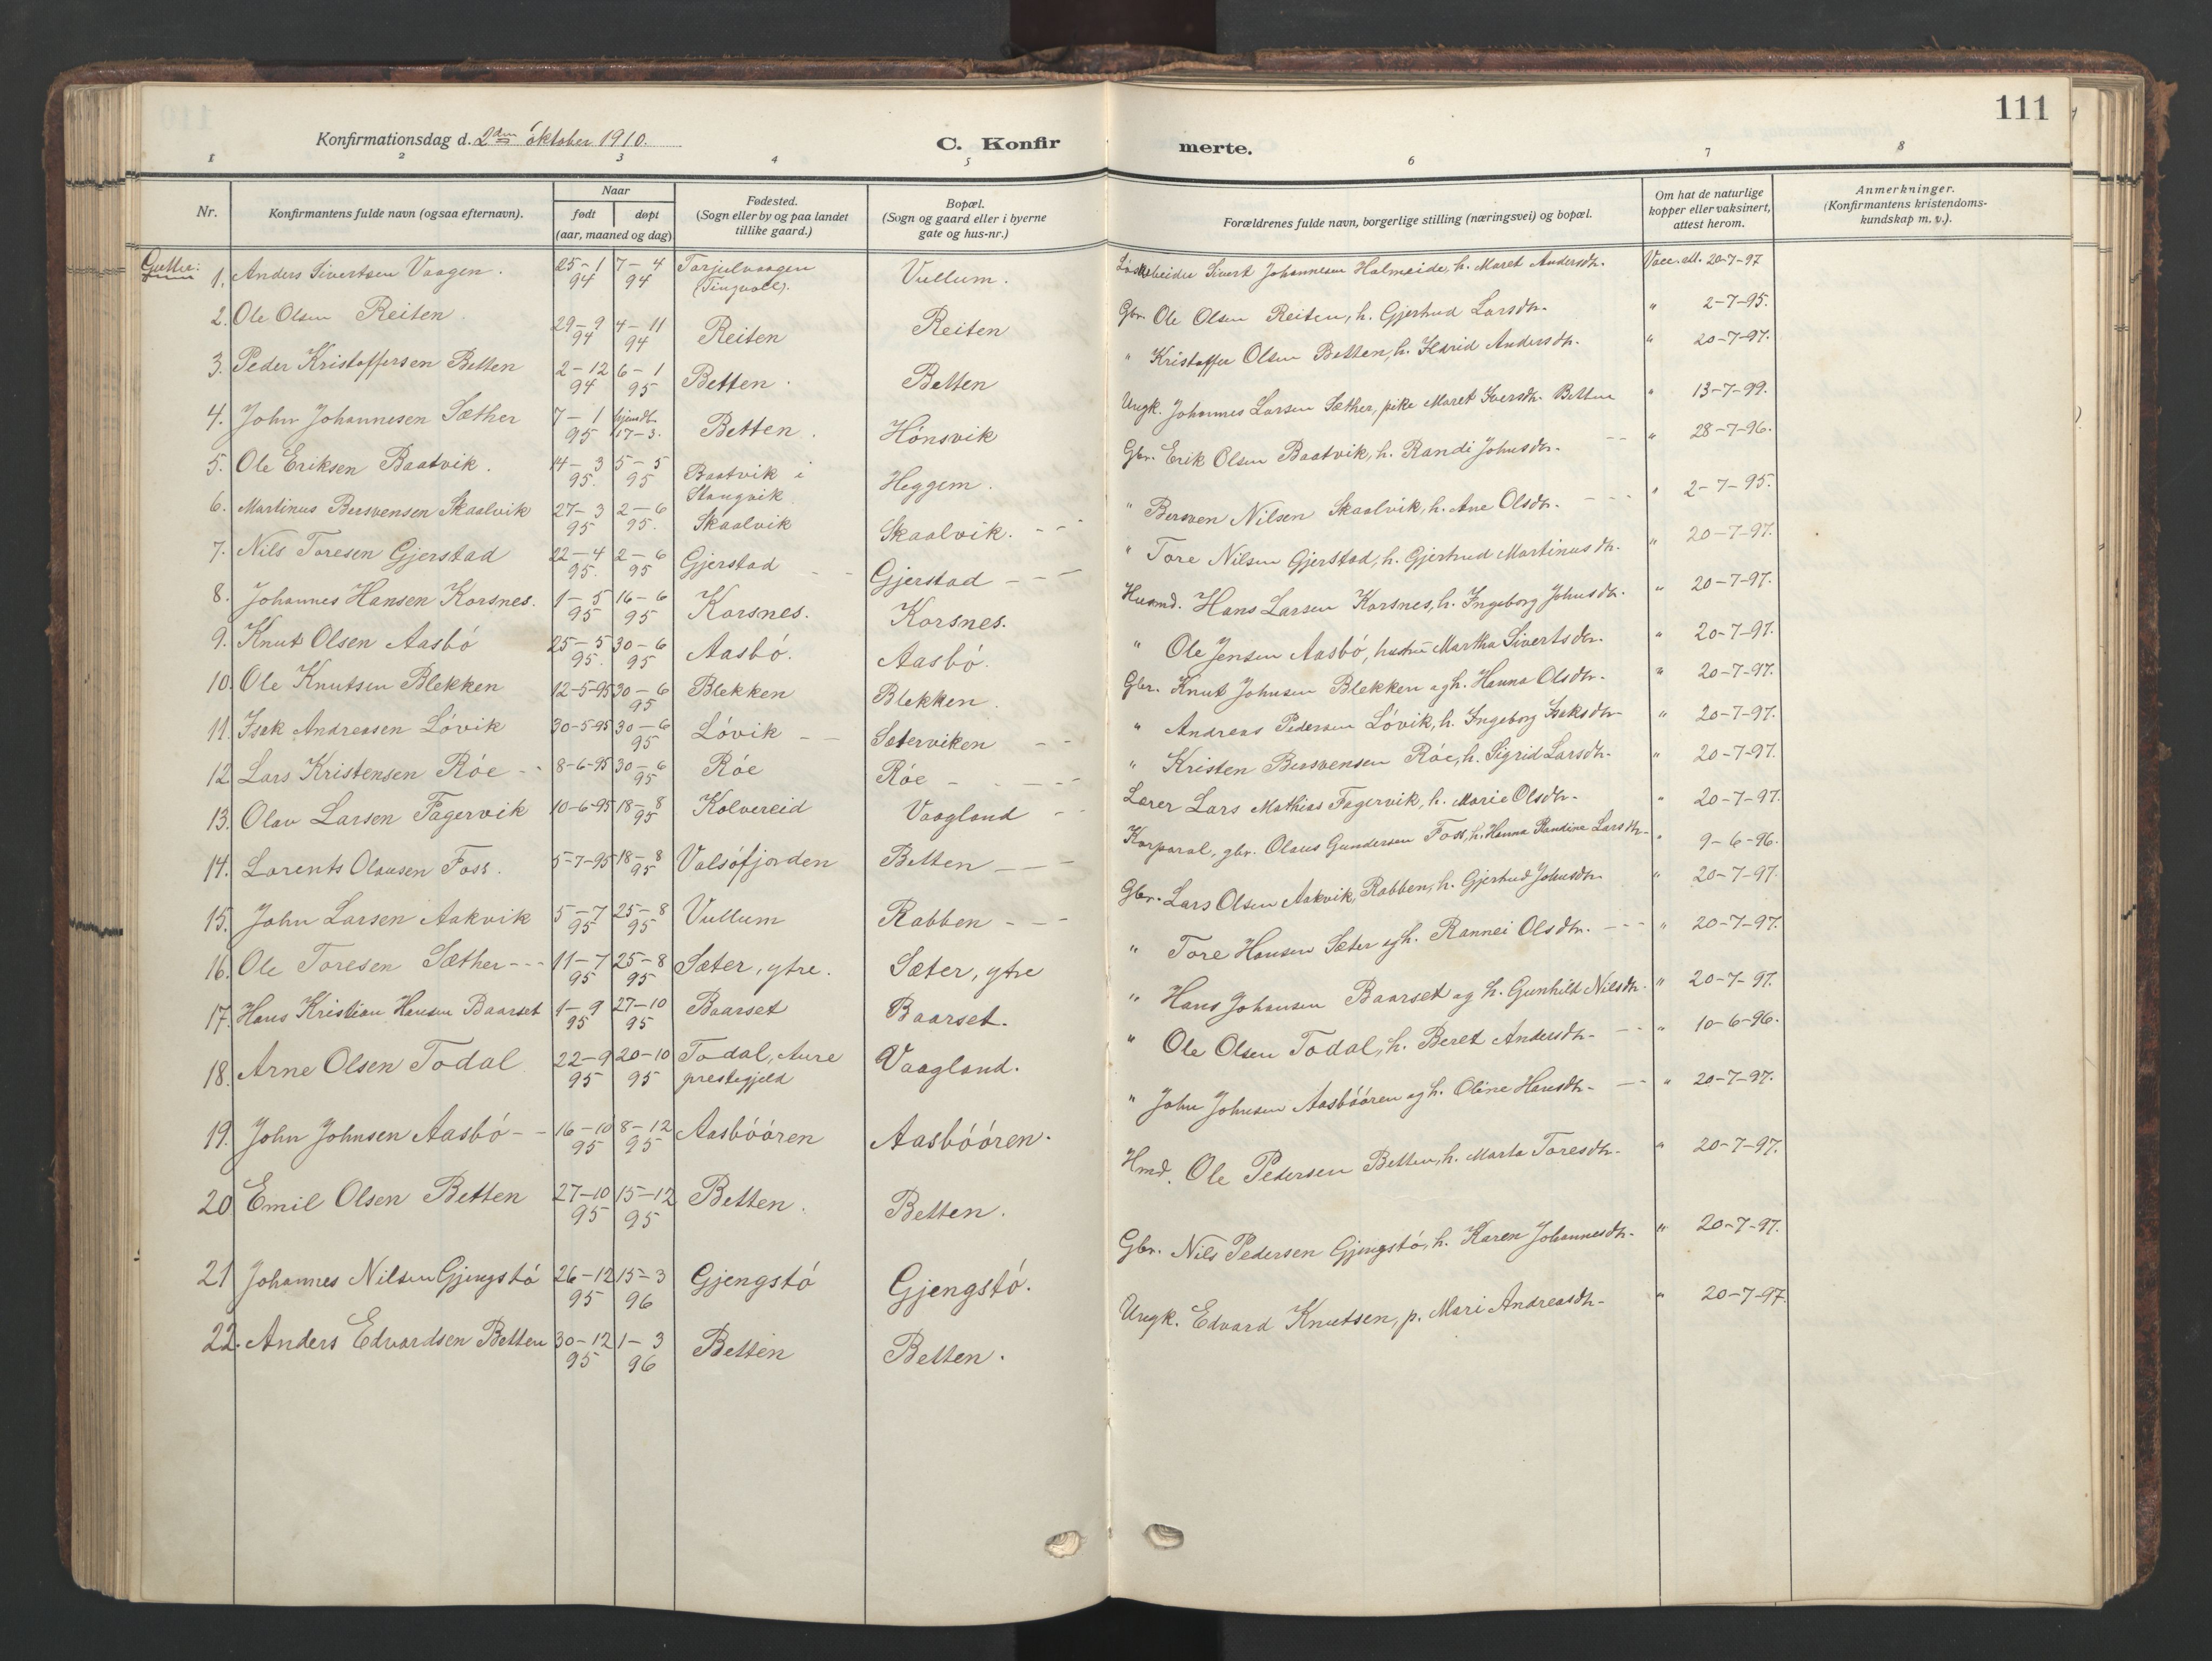 111
Konfirmationsdag d. 2den oktober 1910.
C. Konfir
merte.
1 2 3 4 5 6 7 8
Nr.
Konfirmantens fulde navn (ogsaa efternavn).
Naar
født
døpt
(aar, maaned og dag)
Fødested.
(Sogn eller by og paa landet
tillike gaard.)
Bopæl.
(Sogn og gaard eller i byerne
gate og hus-nr.)
Forældrenes fulde navn, borgerlige stilling (næringsvei) og bopæl.
Om hat de naturlige
kopper eller vaksinert,
attest herom.
Anmerkninger.
(Konfirmantens kristendoms-
kundskap m. v.).
Gutter:
1. Anders Sivertsen Vaagen. 25-1 94 7-4 94 Torjulvaagen (Tingvoll). Vullum. Sivert Johannesen Halmeide, h. Maret Andersdtr. Vacc. att. 20-7-97
2. Ole Olsen Reiten. 29-9 94 4-11 94 Reiten Reiten Gbr. Ole Olsen Reiten, h. Gjertrud Larsdtr. " 2-7-95.
3. Peder Kristoffersen Betten 2-12 94 6-1 95 Betten. Betten " Kristoffer Olsen Betten, h. Andersdtr. " 20-7-97.
4. John Johannesen Sæther 7-1 95 hjemdbt. 17-3. Betten. Hónsvik Ungk. Johannes Larsen Sæther, pike Maret Iversdtr. Betten " 13-7-99.
5. Ole Eriksen Baatvik. 14-3 95. 5-5 95 Baatvik i Stangvik. Heggem. Gbr. Erik Olsen Baatvik, h. Randi Johnsdtr. -- " 28-7-96.
6. Martinus Bersvensen Skaalvik 27-3 95 2-6 95. Skaalvik Skaalvik. -- " Bersven Nilsen Skaalvik, h. Ane Olsdtr. --- " 2-7-95.
7. Nils Toresen Gjerstad 22-4 95. 2-6 95 Gjerstad -- Gjerstad --- " Tore Nilsen Gjerstad, h. Gjertrud Martinusdtr. " 20-7-97.
8. Johannes Hansen Korsnes. 1-5 95 16-6 95 Korsnes. Korsnes. Husmd. Hans Larsen Korsnes, h. Ingeborg Johnsdtr. " 20-7-97.
9. Knut Olsen Aasbó 25-5 95. 30-6 95 Aasbó. Aasbó. " Ole Jensen Aasbó, hustru Martha Sivertsdtr. " 20-7-97.
10. Ole Knutsen Blekken 12-5-95 30-6 95 Blekken Blekken. Gbr. Knut Johnsen Blekken og h. Hanna Olsdtr. " 20-7-97.
11. Isak Andreasen Lóvik 30-5-95 30-6 95 Lóvik -- Sæterviken -- " Andreas Pedersen Lóvik, h. Ingeborg Isaksdtr. " 20-7-97.
12. Lars Kristensen Róe -- 8-6-95 30-6 95 Róe Róe ---- " Kristen Bersvensen Róe, h. Sigrid Larsdtr. " 20-7-97.
13. Olav Larsen Fagervik 10-6-95 18-8 95 Kolvereid Vaagland - Lærer Lars Mathias Fagervik, h. Marie Olsdtr. " 20-7-97.
14. Lorents Olausen Foss. 5-7-95 18-8 95 Valsófjorden Betten -- Korporal, gbr. Olaus Gundersen Foss, h. Hanna Randine Larsdtr. " 9-6-96.
15. John Larsen Aakvik 5-7 95 25-8 95 Vullum Rabben --- Gbr. Lars Olsen Aakvik, Rabben, h. Gjertrud Johnsdtr. " 20-7-97.
16. Ole Toresen Sæther --- 11-7 95 25-8 95 Sæter, ytre. Sæter, ytre " Tore Hansen Sæter og h. Rannei Olsdtr. --- " 20-7-97.
17. Hans Kristian Hansen Baarset 1-9 95 27-10 95 Baarset Baarset. " Hans Johansen Baarset og h. Gunhild Nilsdtr. " 20-7-97.
18. Arne Olsen Todal 22-9 95 20-10 95 Todal, Aure prestegjeld Vaagland. " Ole Olsen Todal, h. Beret Andersdtr. -- " 10-6-96.
19. John Johnsen Aasbó -- 16-10 95 8-12 95 Aasbóóren Aasbóóren. " John Johnsen Aasbóóren og h. Oline Hansdtr. -- " 20-7-97.
20 Emil Olsen Betten 27-10 95 15-12 95 Betten. Betten. Hmd. Ole Pedersen Betten, h. Marta Toresdtr. " 20-7-97.
21 Johannes Nilsen Gjengstó 26-12 95 15-3 96 Gjengstó Gjengstó. Gbr. Nils Pedersen Gjengstó, h. Karen Johannesdtr. " 20-7-97.
22. Anders Edvardsen Betten 30-12 95 1-3 96 Betten Betten. Ungk. Edvard Knutsen, p. Mari Andreasdtr. " 20-7-97.